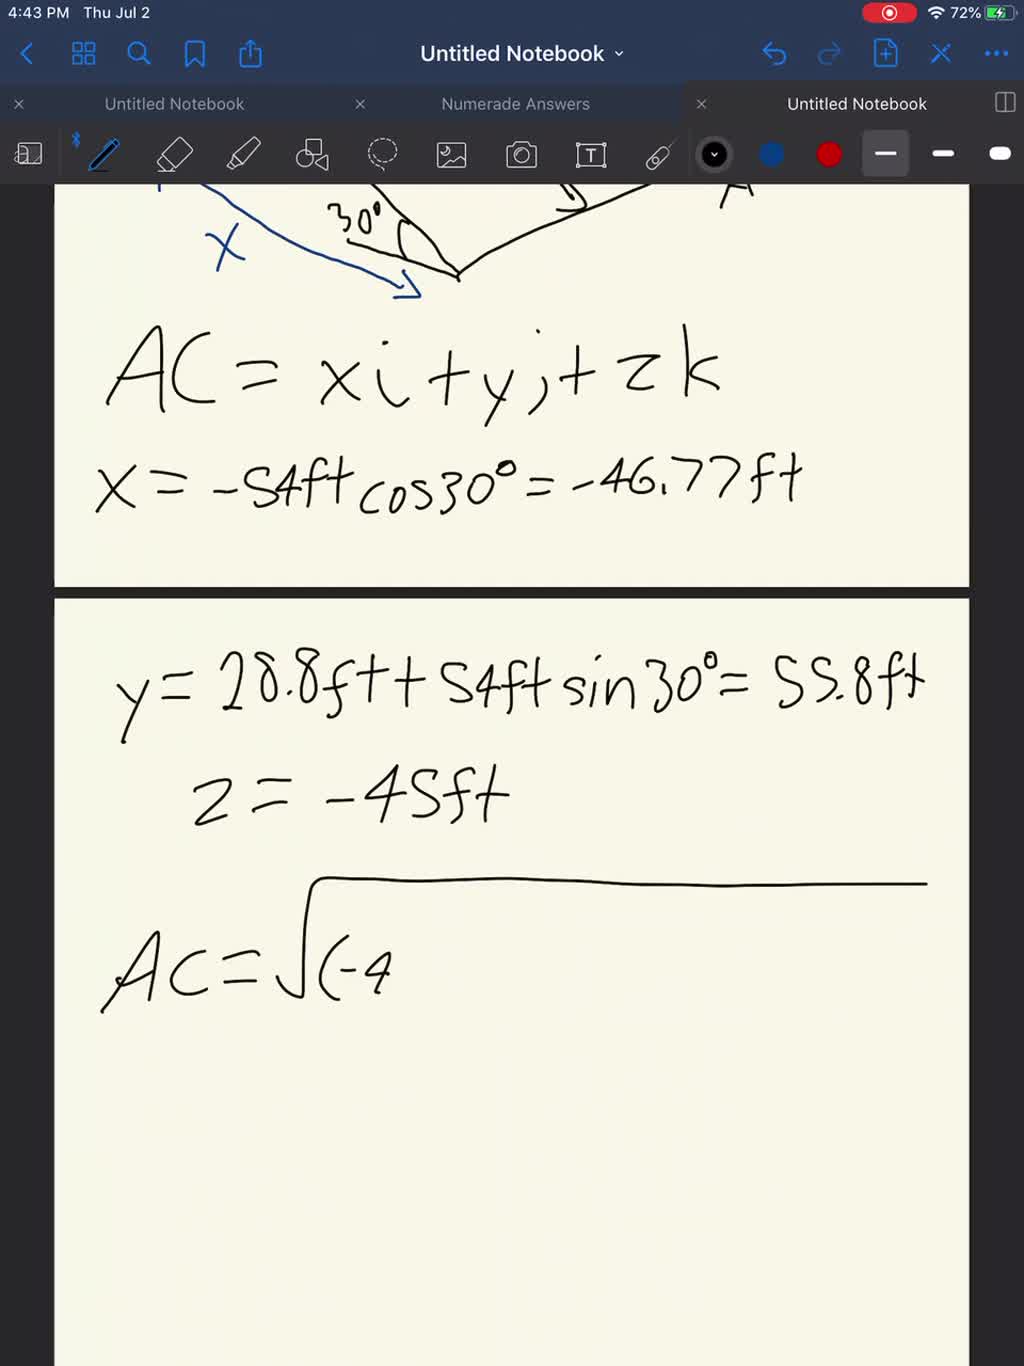 4:43 PM Thu Jul 2 72%
Untitled Notebook
Untitled Notebook Numerade Answers Untitled Notebook
T
30°
X
AC = xi + yj + zk
x = -54ft cos30° = -46.77ft
y = 28.8ft + 54ft sin30° = 55.8ft
z = -45ft
AC = √(-4